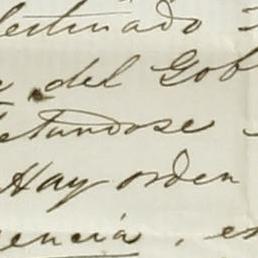 destinado
del Gob
tandose
Hay orden
encia, es